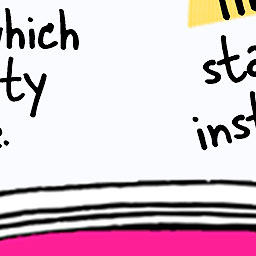 which
ty
e.
sta
inst